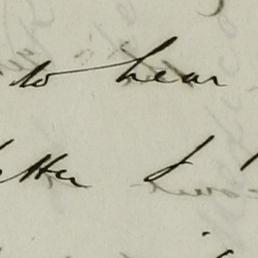 to hear
tter I